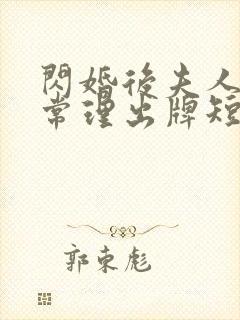 閃婚後夫人
常理出牌短
郭東彪